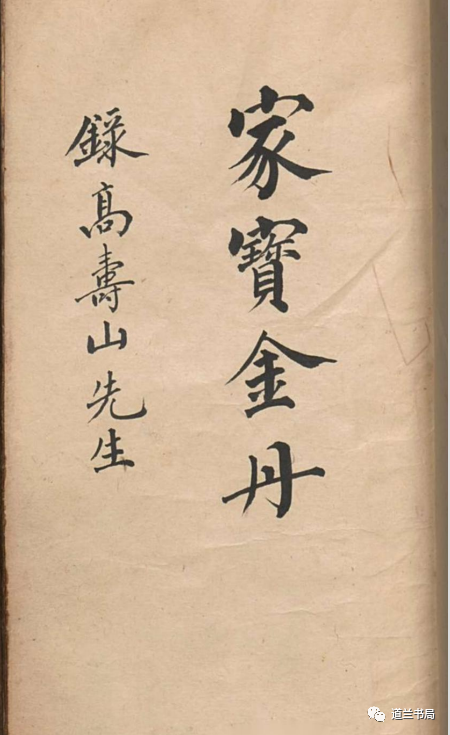 家寶金丹
錄高壽山先生
道兰书局